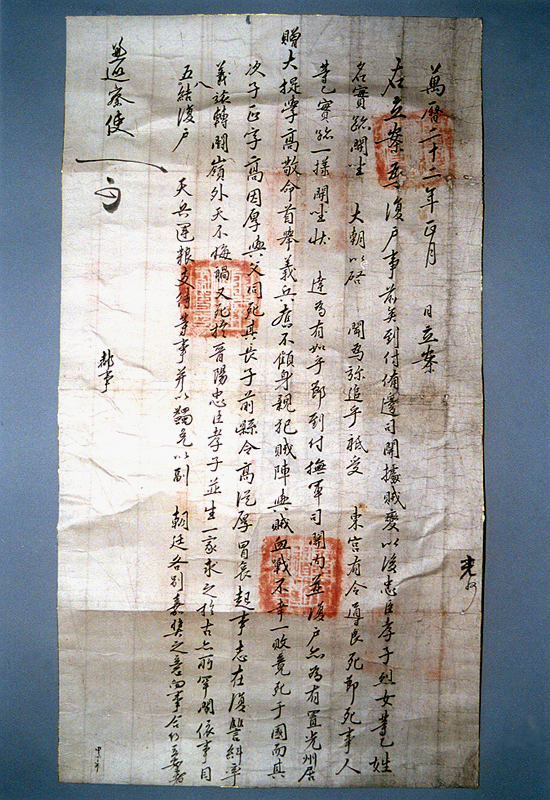 萬曆二十二年正月 日立案
右立案爲復戶事前矣到付備邊司關據賊變以後忠臣孝子烈女等乙姓
名實跡開坐 大朝以啓 聞爲旀追乎祗受 東宮有令導良死節死事人
等乙實跡一樣開坐狀 達爲有如乎節到付撫軍司關內並復戶亦爲有置光州居
贈大提學高敬命首擧義兵奮不傾身親犯賊陣與賊血戰不幸一敗竟死于國而其
次子正字高因厚與父同死其長子前縣令高從厚冒哀起事志在復讐糾率
義旅轉鬪嶺外天不悔禍又死於晉陽忠臣孝子並生一家求之於古亦所罕聞依事目
五結復戶 八 天兵運粮支待等事並以蠲免以副 朝廷各別嘉奬之意向事合行立案者
巡察使
都事
光州